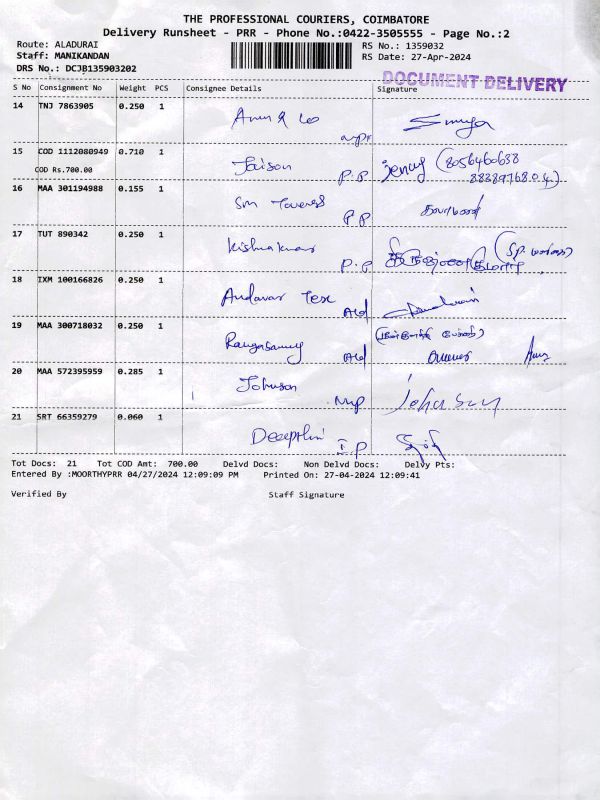 THE PROFESSIONAL COURIERS, COIMBATORE
Delivery Runsheet - PRR - Phone No.:0422-3505555 - Page No.:2
Route: ALADURAI
RS No.: 1359032
Staff: MANIKANDAN
RS Date: 27-Apr-2024
DRS No.: DCJB135903202
DOCUMENT DELIVERY
S No Consignment No Weight PCS Consignee Details Signature
14 TNJ 7863905 0.250 1
15 COD 1112080949 0.710 1 Jaison P.P
COD Rs.700.00
16 MAA 301194988 0.155 1 PP
17 TUT 890342 0.250 1 P.P
18 IXM 100166826 0.250 1 Andavar Tex
19 MAA 300718032 0.250 1 Rangasamy
20 MAA 572395959 0.285 1 Johnson
21 SRT 66359279 0.060 1 I P
Tot Docs: 21 Tot COD Amt: 700.00 Delvd Docs: Non Delvd Docs: Delvy Pts:
Entered By :MOORTHYPRR 04/27/2024 12:09:09 PM Printed On: 27-04-2024 12:09:41
Verified By Staff Signature